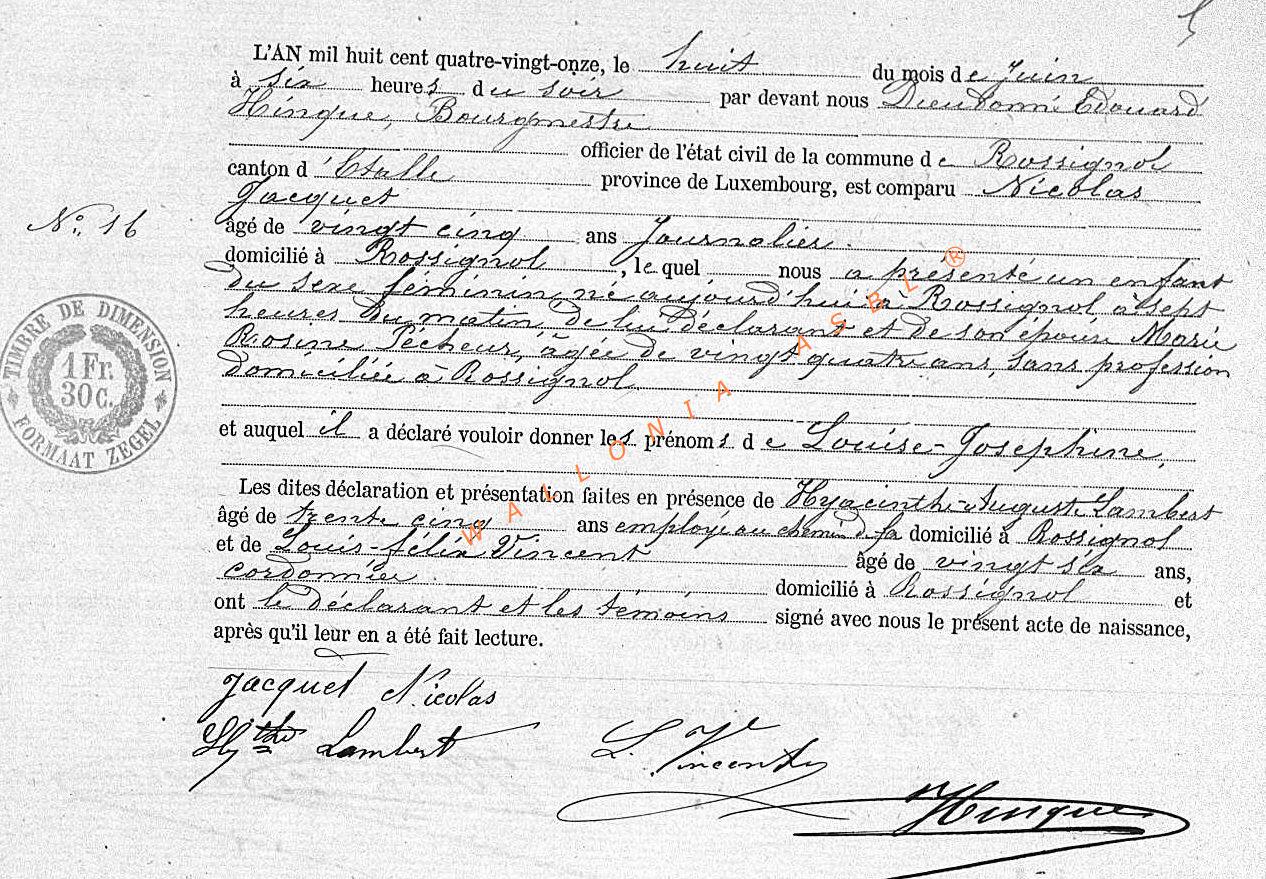 L'AN mil huit cent quatre-vingt-onze, le huit du mois de Juin
à six heures du soir par devant nous Dieudonné Edouard
Hinque, Bourgmestre
officier de l'état civil de la commune de Rossignol
canton d'Etalle province de Luxembourg, est comparu Nicolas
Jacquet
N° 16
âgé de vingt cinq ans Journalier.
domicilié à Rossignol, le quel nous a présenté un enfant
du sexe féminin, né aujourd'hui à Rossignol, à sept
heures du matin, de lui déclarant et de son épouse Marie
Rosine Pécheur, âgée de vingt quatre ans, sans profession
domiciliée à Rossignol
et auquel il a déclaré vouloir donner les prénoms de Louise-Joséphine,
Les dites déclaration et présentation faites en présence de Hyacinthe-Auguste Lambert
âgé de trente cinq ans employé au chemin d. fer domicilié à Rossignol
et de Louis-félix Vincent âgé de vingt six ans,
cordonnier. domicilié à Rossignol et
ont le déclarant et les témoins signé avec nous le présent acte de naissance,
après qu'il leur en a été fait lecture.
Jacquet Nicolas
Hythe Lambert
L. Vincent
Hinque
TIMBRE DE DIMENSION
1 Fr.
30 C.
FORMAAT ZEGEL
WALLONIA ASBL ®